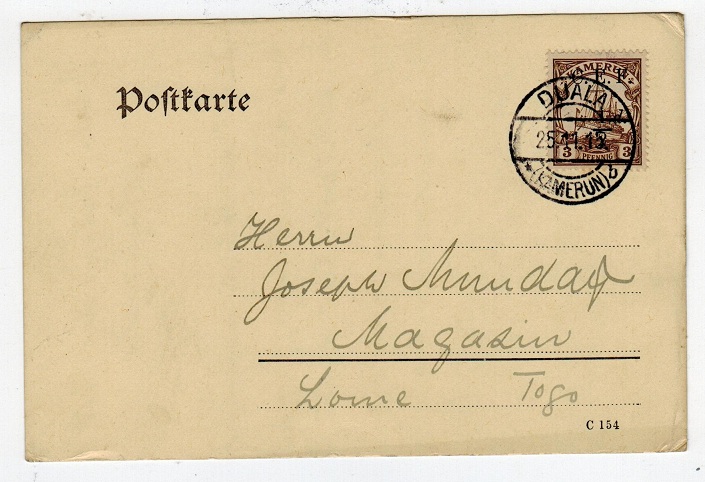 Postkarte
C.E.F.
KAMERUN
DUALA
25.11.13
3 PFENNIG 3
*(KAMERUN) b
Herrn
Joseph
Magasin
Lome Togo
C 154